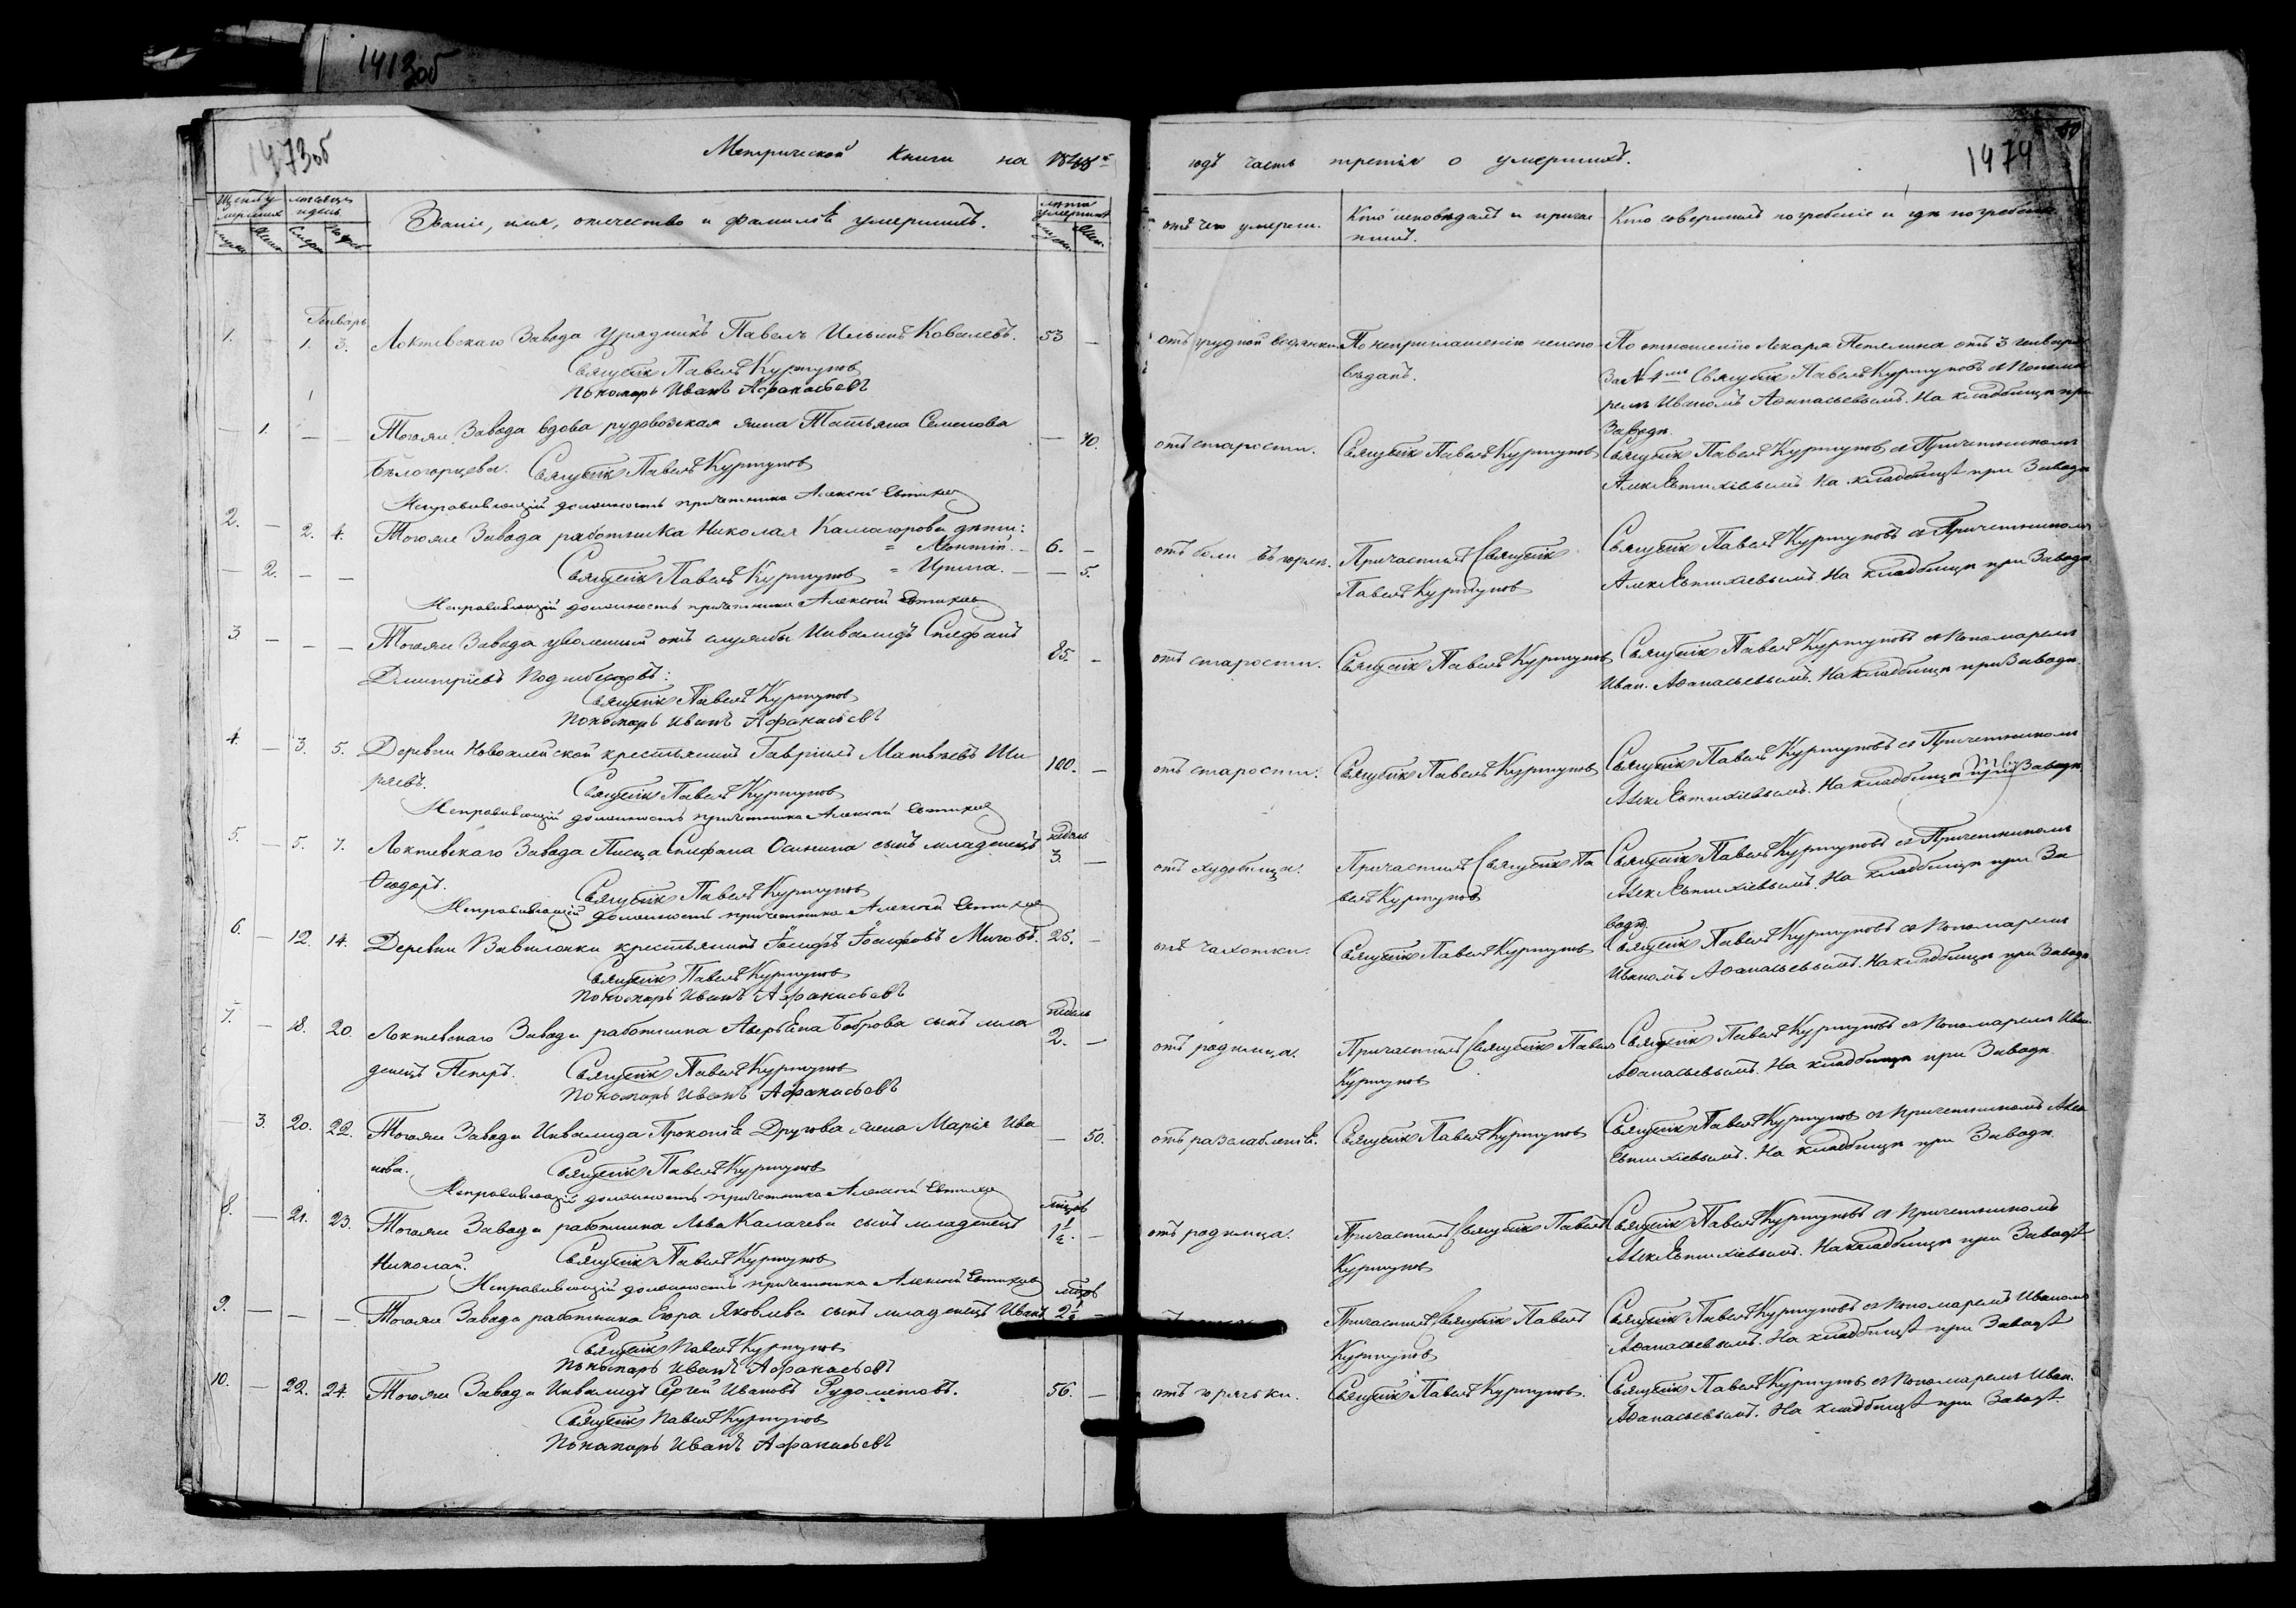 1413об
1473об
Метрической Книги на 1848й
годъ часть третія о умершихъ.
1474
Счетъ умершихъ
мѣсяцъ и день
Званіе, имя, отчество и фамилія умершихъ.
лѣта умершихъ
отъ чего умерли.
Кто исповѣдалъ и причастилъ.
Кто совершалъ погребеніе и гдѣ погребены.
Генварь
1. 1. 3. Локтевскаго Завода Урядникъ Павелъ Ильинъ Ковалевъ. 53 —
Священникъ Павелъ Куртуковъ
Пономарь Иванъ Афанасьевъ
отъ грудной водянки.
По неприглашенію неисповѣданъ.
По отношенію Лекаря Петелина отъ 3 генваря
за № 1мъ Священникъ Павелъ Куртуковъ съ Пономаремъ Иваномъ Аѳанасьевымъ. На кладбищѣ при Заводѣ.
— 1. — — Тогоже Завода вдова рудовозская жена Татьяна Семенова — 70.
Бѣлогорцева. Священникъ Павелъ Куртуковъ
Исправляющій должность причетника Алексѣй Евтихіевъ
отъ старости.
Священникъ Павелъ Куртуковъ
Священникъ Павелъ Куртуковъ съ Причетникомъ
Алек. Евтихіевымъ. На кладбищѣ при Заводѣ
2. — 2. 4. Тогоже Завода работника Николая Камагорова дѣти:
= Леонтій. — 6. —
— 2. — — Священникъ Павелъ Куртуковъ = Ирина. — — 5.
Исправляющій должность причетника Алексѣй Евтихіевъ
отъ боли въ горлѣ.
Причастилъ Священникъ
Павелъ Куртуковъ
Священникъ Павелъ Куртуковъ съ Причетникомъ
Алек. Евтихіевымъ. На кладбищѣ при Заводѣ.
3 — — — Тогоже Завода уволенный отъ службы Инвалидъ Стефанъ 85. —
Дмитріевъ
Священникъ Павелъ Куртуковъ
Пономарь Иванъ Афанасьевъ
отъ старости.
Священникъ Павелъ Куртуковъ
Священникъ Павелъ Куртуковъ съ Пономаремъ
Иван. Аѳанасьевымъ. На кладбищѣ при Заводѣ.
4. — 3. 5. Деревни Новоалейской крестьянинъ Гавріилъ Матвѣевъ Ши- 100. —
ряевъ. Священникъ Павелъ Куртуковъ
Исправляющій должность причетника Алексѣй Евтихіевъ
отъ старости.
Священникъ Павелъ Куртуковъ
Священникъ Павелъ Куртуковъ съ Причетникомъ
Алек. Евтихіевымъ. На кладбищѣ при Заводѣ.
5. — 5. 7. Локтевскаго Завода Писца Стефана Осинина сынъ младенецъ недѣль 3. —
Ѳеодоръ. Священникъ Павелъ Куртуковъ
Исправляющій должность причетника Алексѣй Евтихіевъ
отъ худобища.
Причастилъ Священникъ Па
велъ Куртуковъ
Священникъ Павелъ Куртуковъ съ Причетникомъ
Алек. Евтихіевымъ. На кладбищѣ при За
водѣ.
6. — 12. 14. Деревни Вавилонки крестьянинъ Іосифъ Іосифовъ Мичовъ. 25. —
Священникъ Павелъ Куртуковъ
Пономарь Иванъ Афанасьевъ
отъ чахотки.
Священникъ Павелъ Куртуковъ
Священникъ Павелъ Куртуковъ съ Пономаремъ
Иваномъ Аѳанасьевымъ. На кладбищѣ при Заводѣ.
7. — 18. 20. Локтевскаго Завода работника Аверьяна Боброва сынъ мла недѣль 2. —
денецъ Петръ. Священникъ Павелъ Куртуковъ
Пономарь Иванъ Афанасьевъ
отъ родимца.
Причастилъ Священникъ Павелъ
Куртуковъ
Священникъ Павелъ Куртуковъ съ Пономаремъ Иван.
Аѳанасьевымъ. На кладбищѣ при Заводѣ.
3. 20. 22. Тогоже Завода Инвалида Прокопія Другова жена Марія Ива — 50.
нова. Священникъ Павелъ Куртуковъ
Исправляющій должность причетника Алексѣй Евтихіевъ
отъ разслабленія.
Священникъ Павелъ Куртуковъ
Священникъ Павелъ Куртуковъ съ Причетникомъ Алек.
Евтихіевымъ. На кладбищѣ при Заводѣ.
8. — 21. 23. Тогоже Завода работника Льва Калачева сынъ младенецъ мѣсяцъ 1½. —
Николай. Священникъ Павелъ Куртуковъ
Исправляющій должность причетника Алексѣй Евтихіевъ
отъ родимца.
Причастилъ Священникъ Павелъ
Куртуковъ
Священникъ Павелъ Куртуковъ съ Причетникомъ
Алек. Евтихіевымъ. На кладбищѣ при Заводѣ
9. — — — Тогоже Завода работника Егора Яковлева сынъ младенецъ Иванъ 2½ —
Священникъ Павелъ Куртуковъ
Пономарь Иванъ Афанасьевъ
Причастилъ Священникъ Павелъ
Куртуковъ
Священникъ Павелъ Куртуковъ съ Пономаремъ Иваномъ
Аѳанасьевымъ. На кладбищѣ при Заводѣ
10. — 22. 24. Тогоже Завода Инвалидъ Сергѣй Ивановъ Рудометовъ. 56. —
Священникъ Павелъ Куртуковъ
Пономарь Иванъ Афанасьевъ
отъ горячки.
Священникъ Павелъ Куртуковъ.
Священникъ Павелъ Куртуковъ съ Пономаремъ Иван.
Аѳанасьевымъ. На кладбищѣ при Заводѣ.